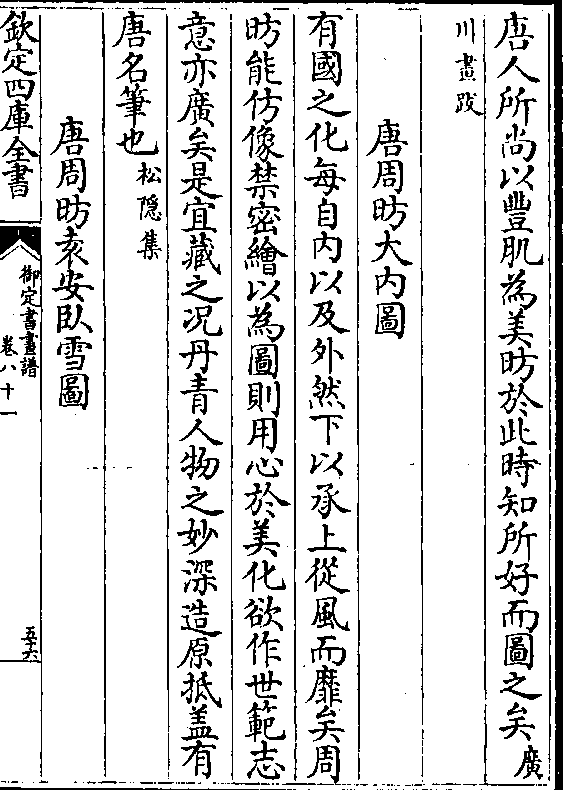 唐人所尚以豐肌為美昉於此時知所好而圖之矣廣
川畫跋
唐周昉大内圖
有國之化每自内以及外然下以承上從風而靡矣周
昉能仿像禁密繪以為圖則用心於美化欲作世範志
意亦廣矣是宜藏之况丹青人物之妙深造原抵盖有
唐名筆也松隠集
唐周昉袁安臥雪圖
欽定四庫全書
御定書畫譜
卷八十一
五十六